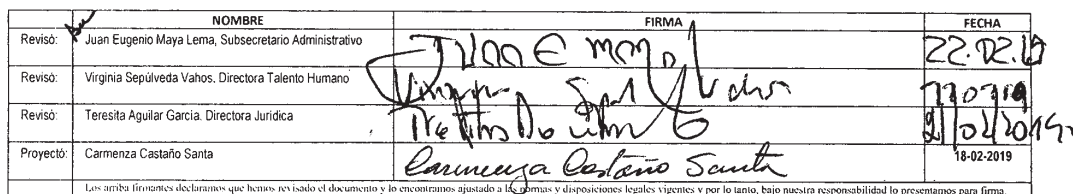 NOMBRE FIRMA FECHA
Revisó: Juan Eugenio Maya Lema, Subsecretario Administrativo 22.02.19
Revisó: Virginia Sepúlveda Vahos. Directora Talento Humano
Revisó: Teresita Aguilar Garcia. Directora Jurídica 21/02/2019
Proyectó: Carmenza Castaño Santa Carmenza Castaño Santa 18-02-2019
Los arriba firmantes declaramos que hemos revisado el documento y lo encontramos ajustado a las normas y disposiciones legales vigentes y por lo tanto, bajo nuestra responsabilidad lo presentamos para firma.